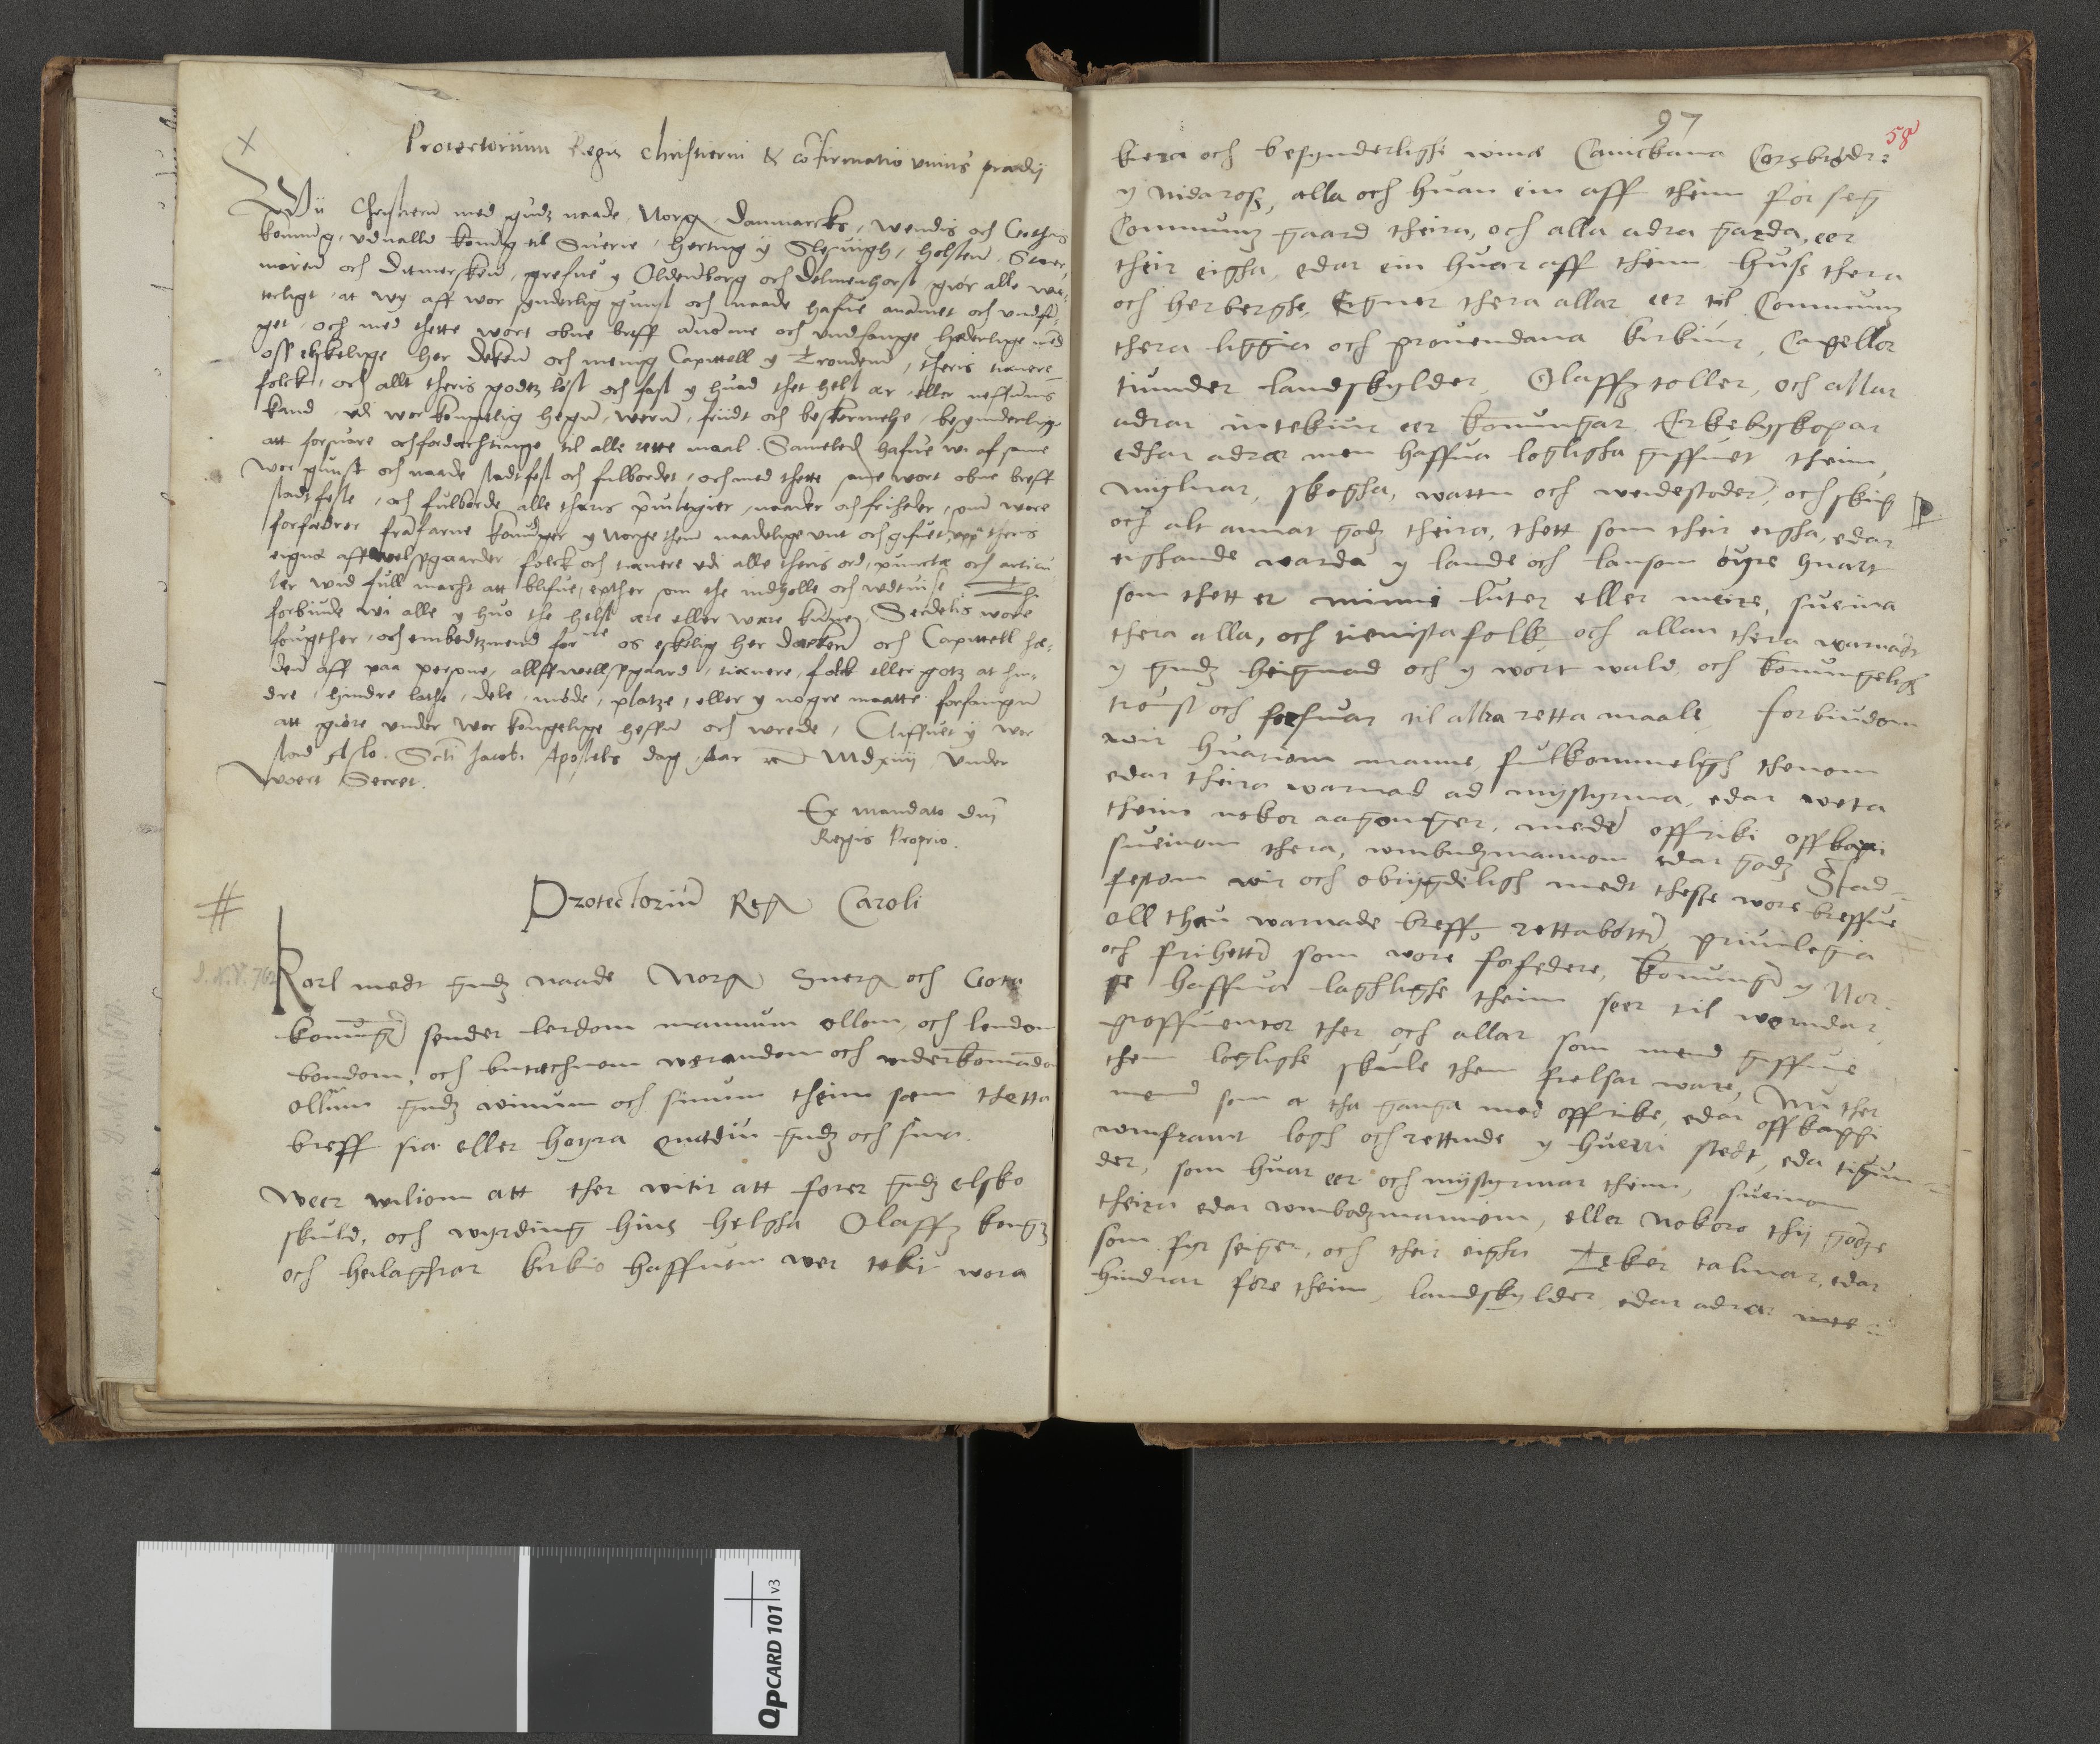 Protectorium Regis Christierni & cōfirmatio vnius prædij
Wii Christiern med gudz naade, Norges, Danmarcks, Wendis och Gothis
konung, vduald konūg til Suerie, hertug y Slesuigh, holsten, Stor-
maren och Ditmersken, grefue y Oldenborg och Delmenhorst, giør alle wit-
terligt, at wy aff wor synderlig gunst och naade hafue anammet och vndfan-
get, och med thette wort obne breff anamme och vndfange hederlige mēd
oss elskelige her deken och menig Capittell y Trondem, theris tienere
folck, och allt theris godtz løst och fast y huad thet helst ær, eller neffnis
kand, vdi wor konnelig hegn, wern, friidt och beskermelse, besynderlige
att forsuare och fordachtinge til alle rette maal. Sameled hafue wi af same
wor gunst och naade stadtfest och fulbordet, och med thette same wort obne breff
stadtfeste, och fulborde alle theris priuilegier, naader och friheder, som wore
forfædrer framfarne konunger y Norge them naadelige vnt och gifuet, vppa theris
eigne afwelsgaarder folck och tienere vdi alle theris ord, puncta och articu
ler wid full macht att blifue, epther som the indholle och wdtuise. Thi
forbiude wi alle y huo the helst ære eller wære kunne, Serdelis wore
fougther, och embedtzmend forne os elskelig her Deken och Capittell her
den aff paa persone, allffwellsgaard, tienere, folck eller gotz at hin-
dre, hindre lathe, dele, møde, platze, eller y nogre maatte forfangen
att giøre vnder wor kongelige heffn och wrede, Giffuet y wor
stad Aslo. Scti Jacobi Apostels dag, aar Mdxiiij vnder
Woert Secret.
Ex mandato dnj
Regis Proprio.
Protectoriū Regis Caroli
D.N.V. 762
Karl medt gudz naade Norges Suerges och Gota
konūger sender lerdom mannum ollom, och lendom
bondom, och butæchnom werandom och viderkomādom
ollum gudz winum och sinum theim sæm thetta
breff sia eller høyra quædiu gudz och sina.
Weer wiliom att ther witir att forer gudz elsko
skuld, och wyrding hins helgha Olaffz kongz
och heilaghrar kirkio haffuom wer tekit wora
97
58
kera och besynderlighe wina Canickana Corsbrødr
y Nidaross, alla och huan ein aff theim for seg
Communz gaard theira, och alla adra garda, eer
their eigha, edar ein huar aff theim huss thera
och herberghe. Eigner thera allar eer til Communz
thera liggia och prouendana kirkiur, Capellor
tiunder landskylder, Olaffz toller, och allar
adrar intekiur eer konungar Erkebyskopar
edhar adrar men haffua logligha giffuet theim,
mylnar, skogha, watn och weidestoder, och skip
och alt annat godz theira, thett som their eigha, edar
eighande warda y lande och lansom øyre huart
som thett er minne luter eller meire, sueina
thera alla, och tienista folk och allan thera warnadt
y gudz heignad och y wort wald och konungeligh
troust och forsuar til alla retta maale forbiudom
wir huariom manne, fulkommeligh thenom
edar theira warnad ad mystyrma, edar weta
theim nokor aagonger, medr offriki offkapi
sueinom thera, vmbudzmannom edar godz Stad-
festom wir och obrygdeligh medt theste wore breffue
oll theu warnade breff, rettabotter, priuilegia
och frihetter som wore forfedere, konunger y Nor
ge haffua laghlighe theim seer til werndar
groffuentor ther och allar som mend giffue
them loglighe skule them frelsar ware, Nu ther
mend som a tha ganga med offrike, edar offkaghi
vmframt logh och rettinde y huerri stedt, eda tignn
der, som huar eer och mystyrmar theim, sueinom
theira edar vmbodzmannom, eller nokoro thij godze
som fyr seiger, och their eigha Teker talmar, edar
hindrar fore theim, landskylder edar adrar